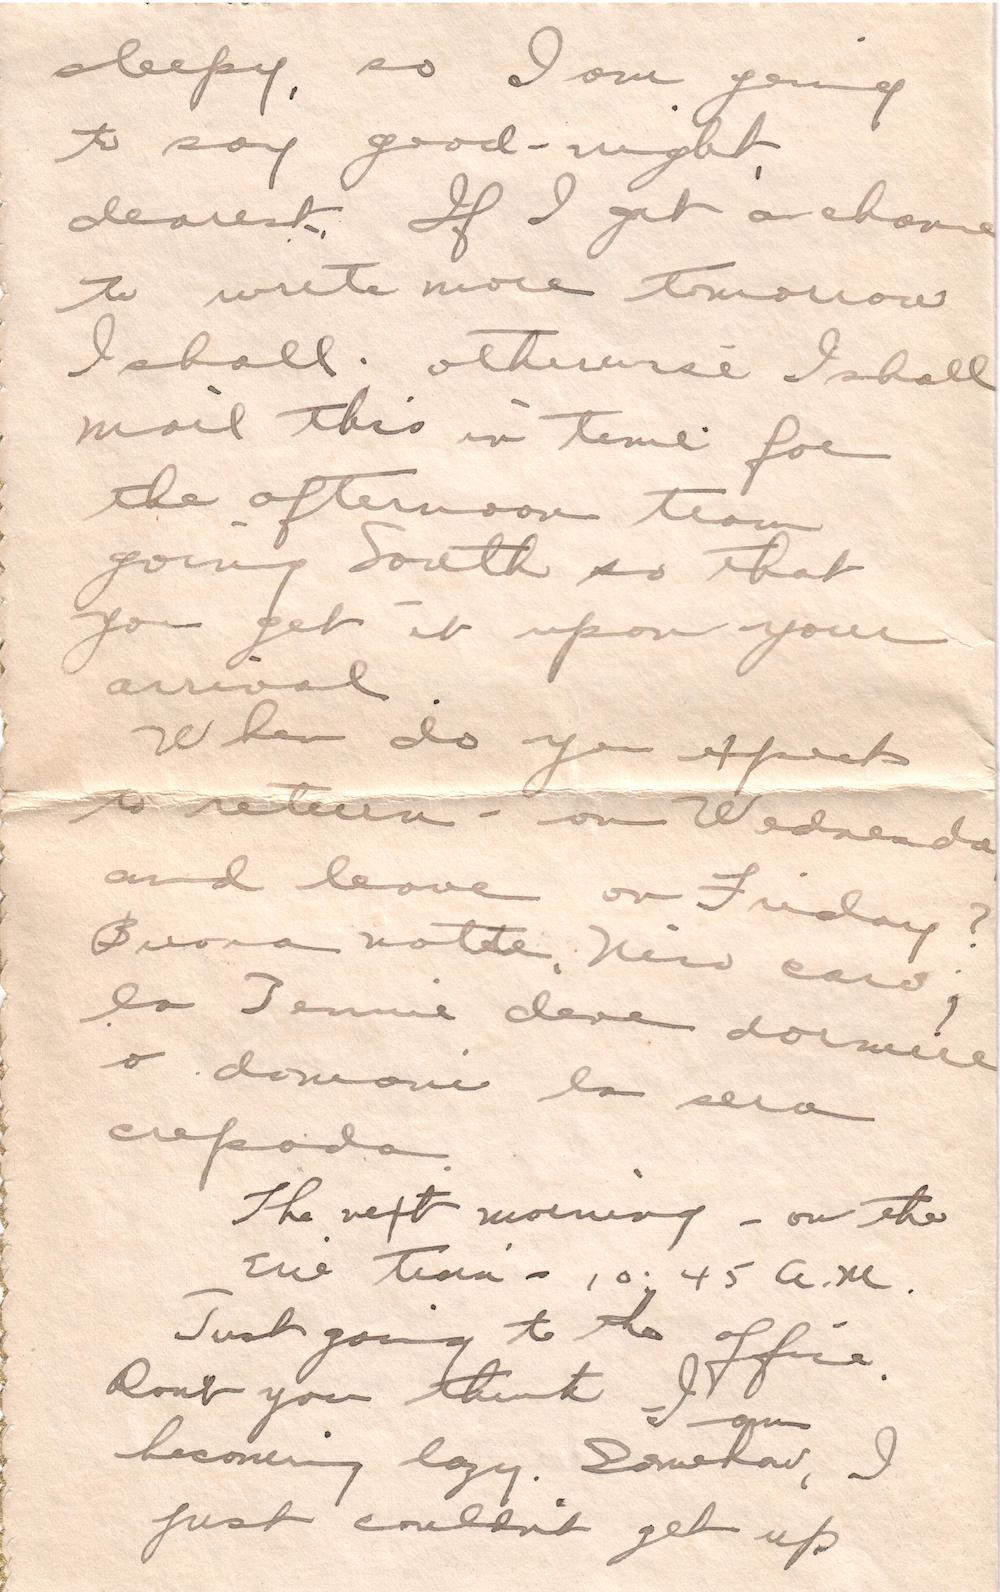 sleepy, so I am going
to say good-night,
dearest. If I get a chance
to write more tomorrow
I shall. otherwise I shall
mail this in time for
the afternoon train
going South so that
you get it upon your
arrival.
When do you expect
to return - on Wednesda
and leave on Friday?
Buona notte, Nino caro;
la Jennie deve dormire
o domani la sera
crepada.
The next morning - on the
Erie train - 10:45 A.M.
Just going to the office.
Don't you think I am
becoming lazy. Somehow, I
just couldn't get up